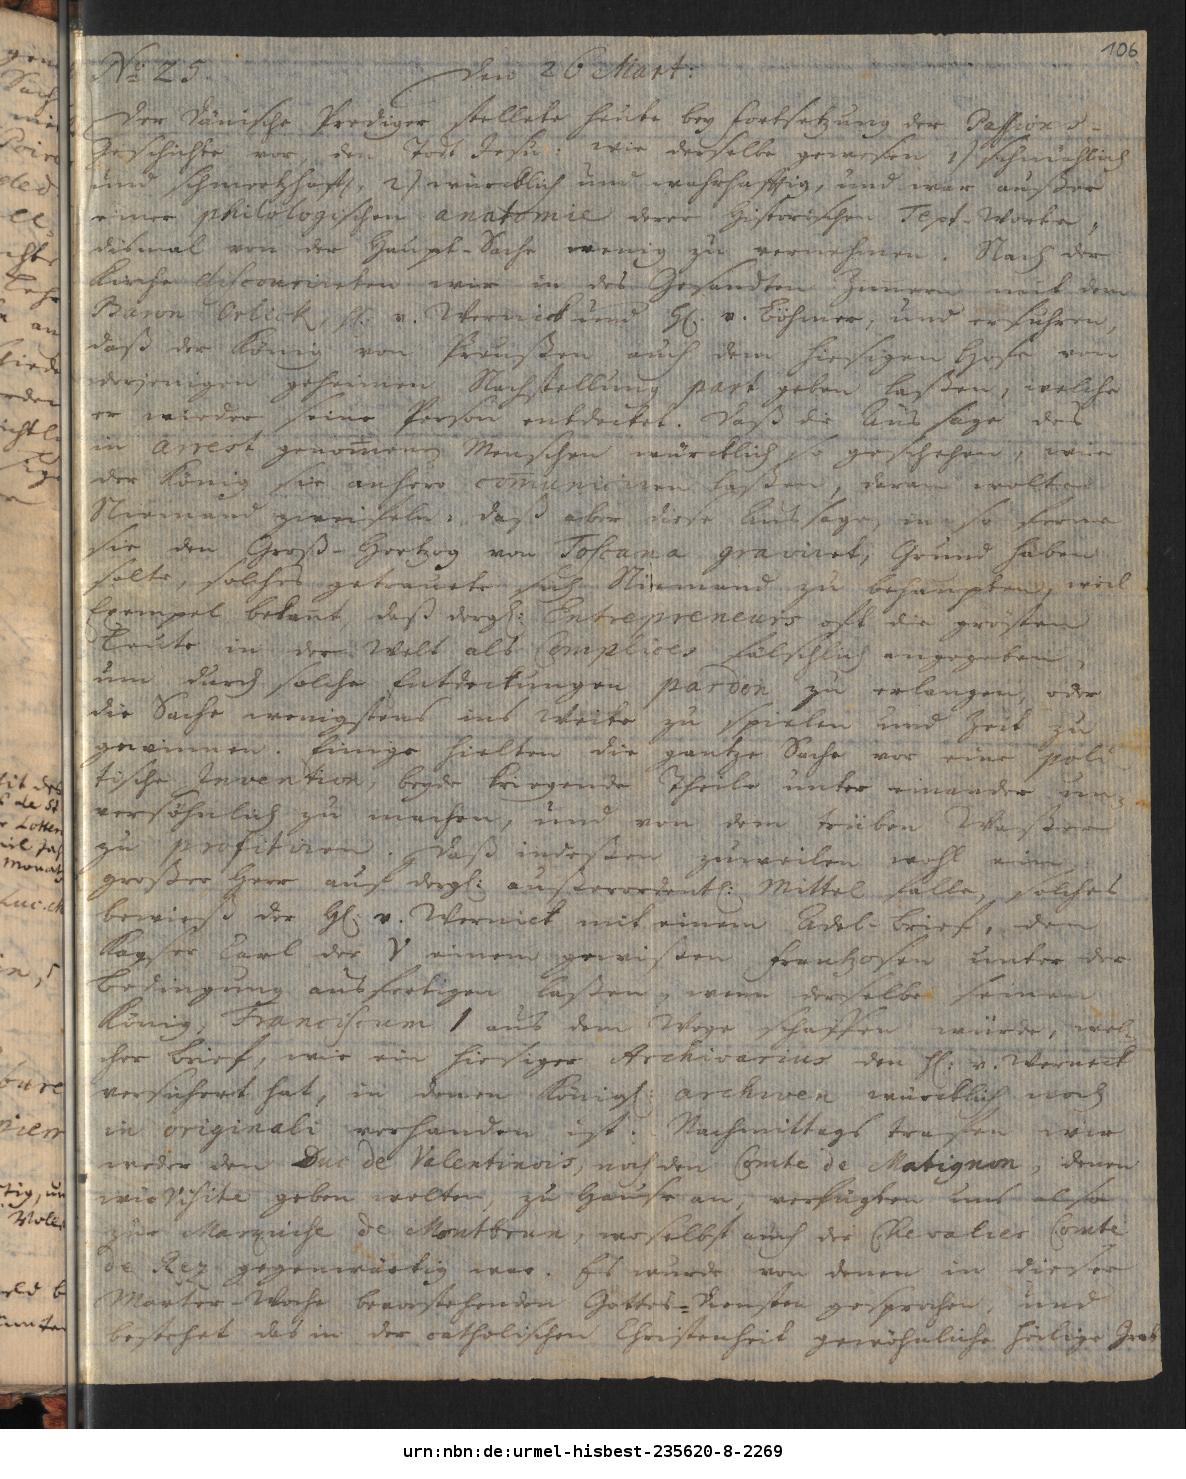 106
No 25.
Den 26 Mart:
Der Dänische Prediger stellete heute bey fortsetzung der Passions-
Geschichte vor, den Todt Jesu: wie derselbe gewesen 1) schmählich
und schmertzhafft, 2) würcklich und wahrhafftig, und war außer
einer philologischen anatomie derer Historischen Text-Worte,
dismal von der Haupt-Sache wenig zu vernehmen. Nach der
Kirche discourireten wir in des Gesandten Zimmer mit dem
Baron Orlick, H: v. Wernick und H: v. Böhmer, und erfuhren,
daß der König von Preußen auch dem hiesigen Hofe von
derjenigen geheimen Nachstellung part geben laßen, welche
er wieder seine Person entdecket. Daß die Aussage des
in arrest genom̅enen Menschen würcklich so geschehen, wie
der König sie anhero com̅uniciren laßen, daran wolte
Niemand zweifeln, daß aber diese Aussage, in so ferne
sie den Groß-Hertzog von Toscana graviret, Grund haben
solte, solches getrauete sich Niemand zu behaupten, weil
Exempel bekan̅t, daß dergl: Entrepreneurs oft die grösten
Leute in der Welt als Complices fälschlich angegeben,
um durch solche Entdeckungen pardon zu erlangen, oder
die Sache wenigstens ins Weite zu spielen und Zeit zu
gewinnen. Einige hielten die gantze Sache vor eine poli-
tische Invention, beyde kriegende Theile unter einander un-
versöhnlich zu machen, und von dem trüben Waßer
zu profitiren. Daß indeßen zuweilen wohl ein
großer Herr auf dergl: außerordentl: Mittel falle, solches
bewieß der H: v. Wernick mit einem Adel-brief, den
Kayser Carl der V einem gewißen Frantzosen unter der
Bedingung ausfertigen laßen, wenn derselbe seinen
König, Franciscum I aus dem Wege schaffen würde, wel-
cher brief, wie ein hiesiger Archivarius den H: v. Wernick
versichert hat, in denen Königl: archiven würcklich noch
in originali vorhanden ist. Nachmittags trafen wir
weder den Duc de Valentinois, noch den Comte de Matignon, denen
wir Visite geben wolten, zu Hause an, verfügten uns also
zur Marquise de Montbrun, woselbst auch der Chevalier Comte
de Rez gegenwärtig war. Es wurde von denen in dieser
Marter-Woche bevorstehenden Gottes-Diensten gesprochen, und
bestehet das in der catholischen Christenheit gewöhnliche heilige Grab
urn:nbn:de:urmel-hisbest-235620-8-2269